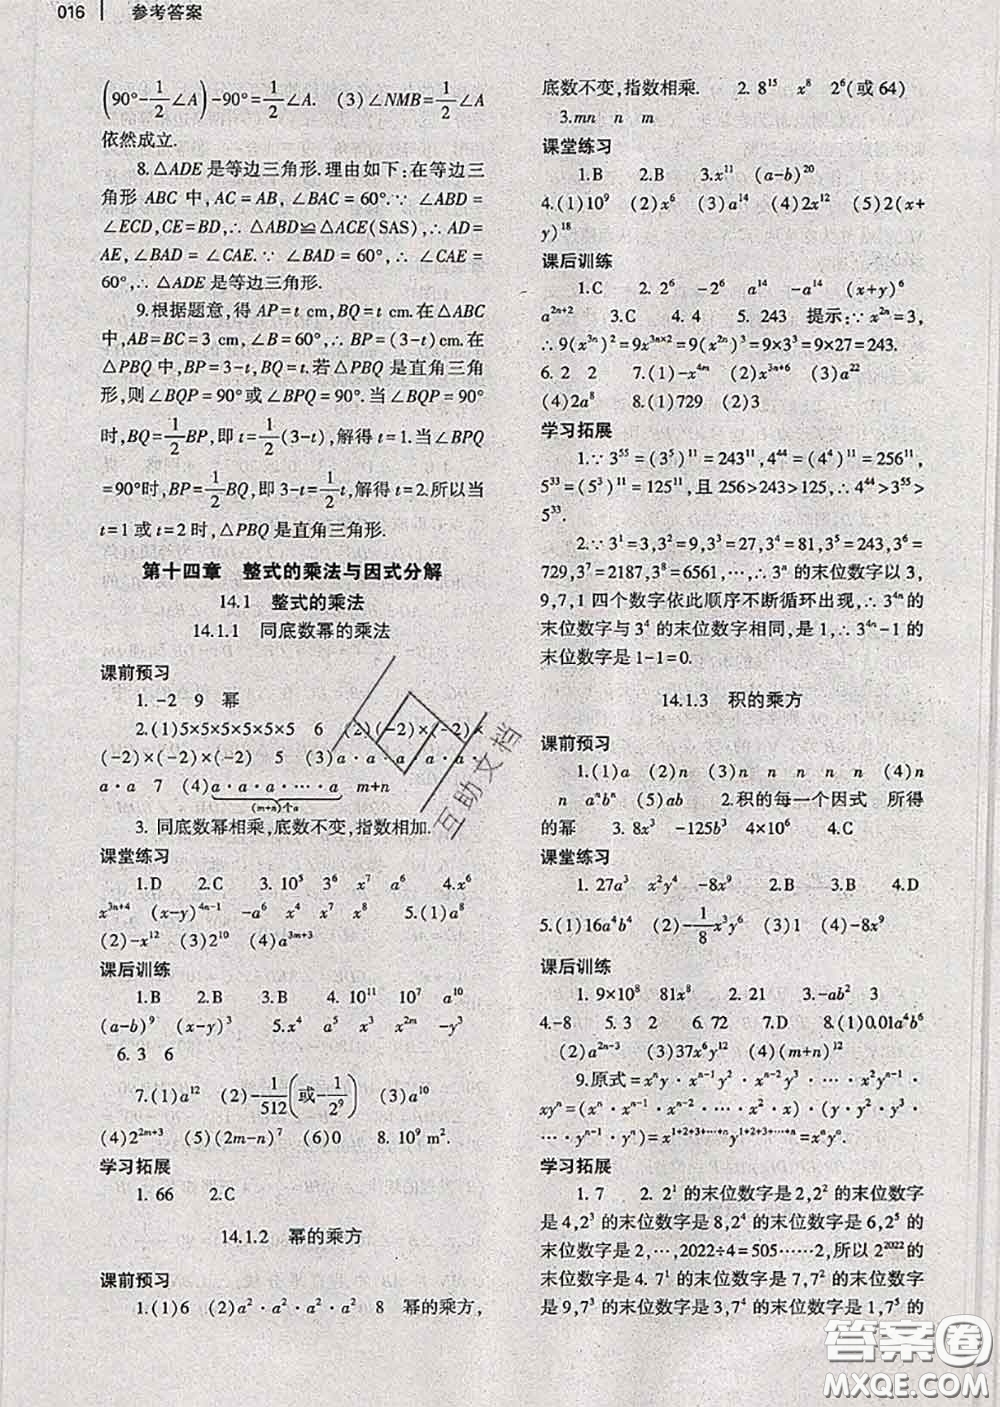 016 参考答案
(90°-1/2∠A)-90°=1/2∠A. (3)∠NMB=1/2∠A
依然成立.
8.△ADE 是等边三角形.理由如下:在等边三
角形 ABC 中,AC=AB,∠BAC=60°.∵ ∠ABD=
∠ECD,CE=BD,∴ △ABD≌△ACE(SAS),∴ AD=
AE,∠BAD=∠CAE.∵ ∠BAD=60°,∴ ∠CAE=
60°,∴ △ADE 是等边三角形.
9.根据题意,得 AP=t cm,BQ=t cm.在△ABC
中,AB=BC=3 cm,∠B=60°,∴ BP=(3-t)cm.在
△PBQ 中,BP=3-t,BQ=t.若△PBQ 是直角三角
形,则∠BQP=90°或∠BPQ=90°.当∠BQP=90°
时,BQ=1/2BP,即 t=1/2(3-t),解得 t=1.当∠BPQ
=90°时,BP=1/2BQ,即 3-t=1/2t,解得 t=2.所以当
t=1 或 t=2 时,△PBQ 是直角三角形.
第十四章 整式的乘法与因式分解
14.1 整式的乘法
14.1.1 同底数幂的乘法
课前预习
1.-2 9 幂
2.(1)5×5×5×5×5×5 6 (2)(-2)×(-2)×
(-2)×(-2)×(-2) 5 (3)a·a·a·a·a·
a·a 7 (4)a·a·a·…·a m+n
(m+n)个a
3. 同底数幂相乘,底数不变,指数相加.
课堂练习
1.D 2.C 3.10⁵ 3⁶ x⁷ a⁶ 4.x⁶
x³ⁿ⁺⁴ (x-y)⁴ⁿ⁻¹ -a⁶ x⁴ x⁷ x⁸ 5.(1)a⁸
(2)-x¹² (3)2¹⁰ (4)a³ᵐ⁺³
课后训练
1.B 2.B 3.B 4.10¹¹ 10⁷ a¹⁰
(a-b)⁹ (x-y)³ 5.x⁴ a⁵ x³ x²ᵐ -y³
6.3 6
7.(1)a¹² (2)-1/512(或-1/2⁹) (3)a¹⁰
(4)2²ᵐ⁺³ (5)(2m-n)⁷ (6)0 8.10⁹ m².
学习拓展
1.66 2.C
14.1.2 幂的乘方
课前预习
1.(1)6 (2)a²·a²·a²·a² 8 幂的乘方,
底数不变,指数相乘. 2.8¹⁵ x⁸ 2⁶(或 64)
3.mn n m
课堂练习
1.B 2.B 3.x¹¹ (a-b)²⁰
4.(1)10⁹ (2)x⁶ (3)a¹⁴ (4)2x¹² (5)2(x+
y)¹⁸
课后训练
1.C 2.2⁶ -2⁶ a¹⁴ -a¹⁴ (x+y)⁶
a²ⁿ⁺² 3.C 4.4 5.243 提示:∵ x²ⁿ=3,
∴ 9(x³ⁿ)²=9x³ⁿˣ²=9(x²ⁿ)³=9×3³=9×27=243.
6.2 2 7.(1)-x⁴ᵐ (2)x³ⁿ⁺⁶ (3)a²²
(4)2a⁸ 8.(1)729 (2)3
学习拓展
1.∵ 3⁵⁵=(3⁵)¹¹=243¹¹,4⁴⁴=(4⁴)¹¹=256¹¹,
5³³=(5³)¹¹=125¹¹,且 256>243>125,∴ 4⁴⁴>3⁵⁵>
5³³.
2.∵ 3¹=3,3²=9,3³=27,3⁴=81,3⁵=243,3⁶=
729,3⁷=2187,3⁸=6561,…,∴ 3ⁿ 的末位数字以 3,
9,7,1 四个数字依此顺序不断循环出现,∴ 3⁴ⁿ 的
末位数字与 3⁴ 的末位数字相同,是 1,∴ 3⁴ⁿ-1 的
末位数字是 1-1=0.
14.1.3 积的乘方
课前预习
1.(1)a (2)n (3)n n n n n (4)n
n aⁿbⁿ (5)ab 2.积的每一个因式 所得
的幂 3.8x³ -125b³ 4×10⁶ 4.C
课堂练习
1.27a³ x²y⁴ -8x⁹ 2.B 3.B 4.D
5.(1)16a⁴b⁴ (2)-1/8x³y⁶ (3)1 (4)-8x⁹
课后训练
1.9×10⁸ 81x⁸ 2.21 3.-ab² 3
4.-8 5.3 2 6.72 7.D 8.(1)0.01a⁴b⁶
(2)a²ⁿ⁻³ (3)37x⁶y¹² (4)(m+n)¹²
9.原式=xⁿy·xⁿ⁻¹y²·xⁿ⁻²y³·…·x²yⁿ⁻¹·
xyⁿ=(xⁿ·xⁿ⁻¹·xⁿ⁻²·…·x²·x)·(y·y²·y³
·…·yⁿ⁻¹·yⁿ)=x¹⁺²⁺³⁺…⁺ⁿy¹⁺²⁺³⁺…⁺ⁿ=xᵃyᵃ.
学习拓展
1.7 2.2¹ 的末位数字是 2,2² 的末位数字
是 4,2³ 的末位数字是 8,2⁴ 的末位数字是 6,2⁵ 的
末位数字是 2,…,2022÷4=505……2,所以 2²⁰²² 的
末位数字是 4.7¹ 的末位数字是 7,7² 的末位数字
是 9,7³ 的末位数字是 3,7⁴ 的末位数字是 1,7⁵ 的
互助文档
答案圈
MXQE.COM